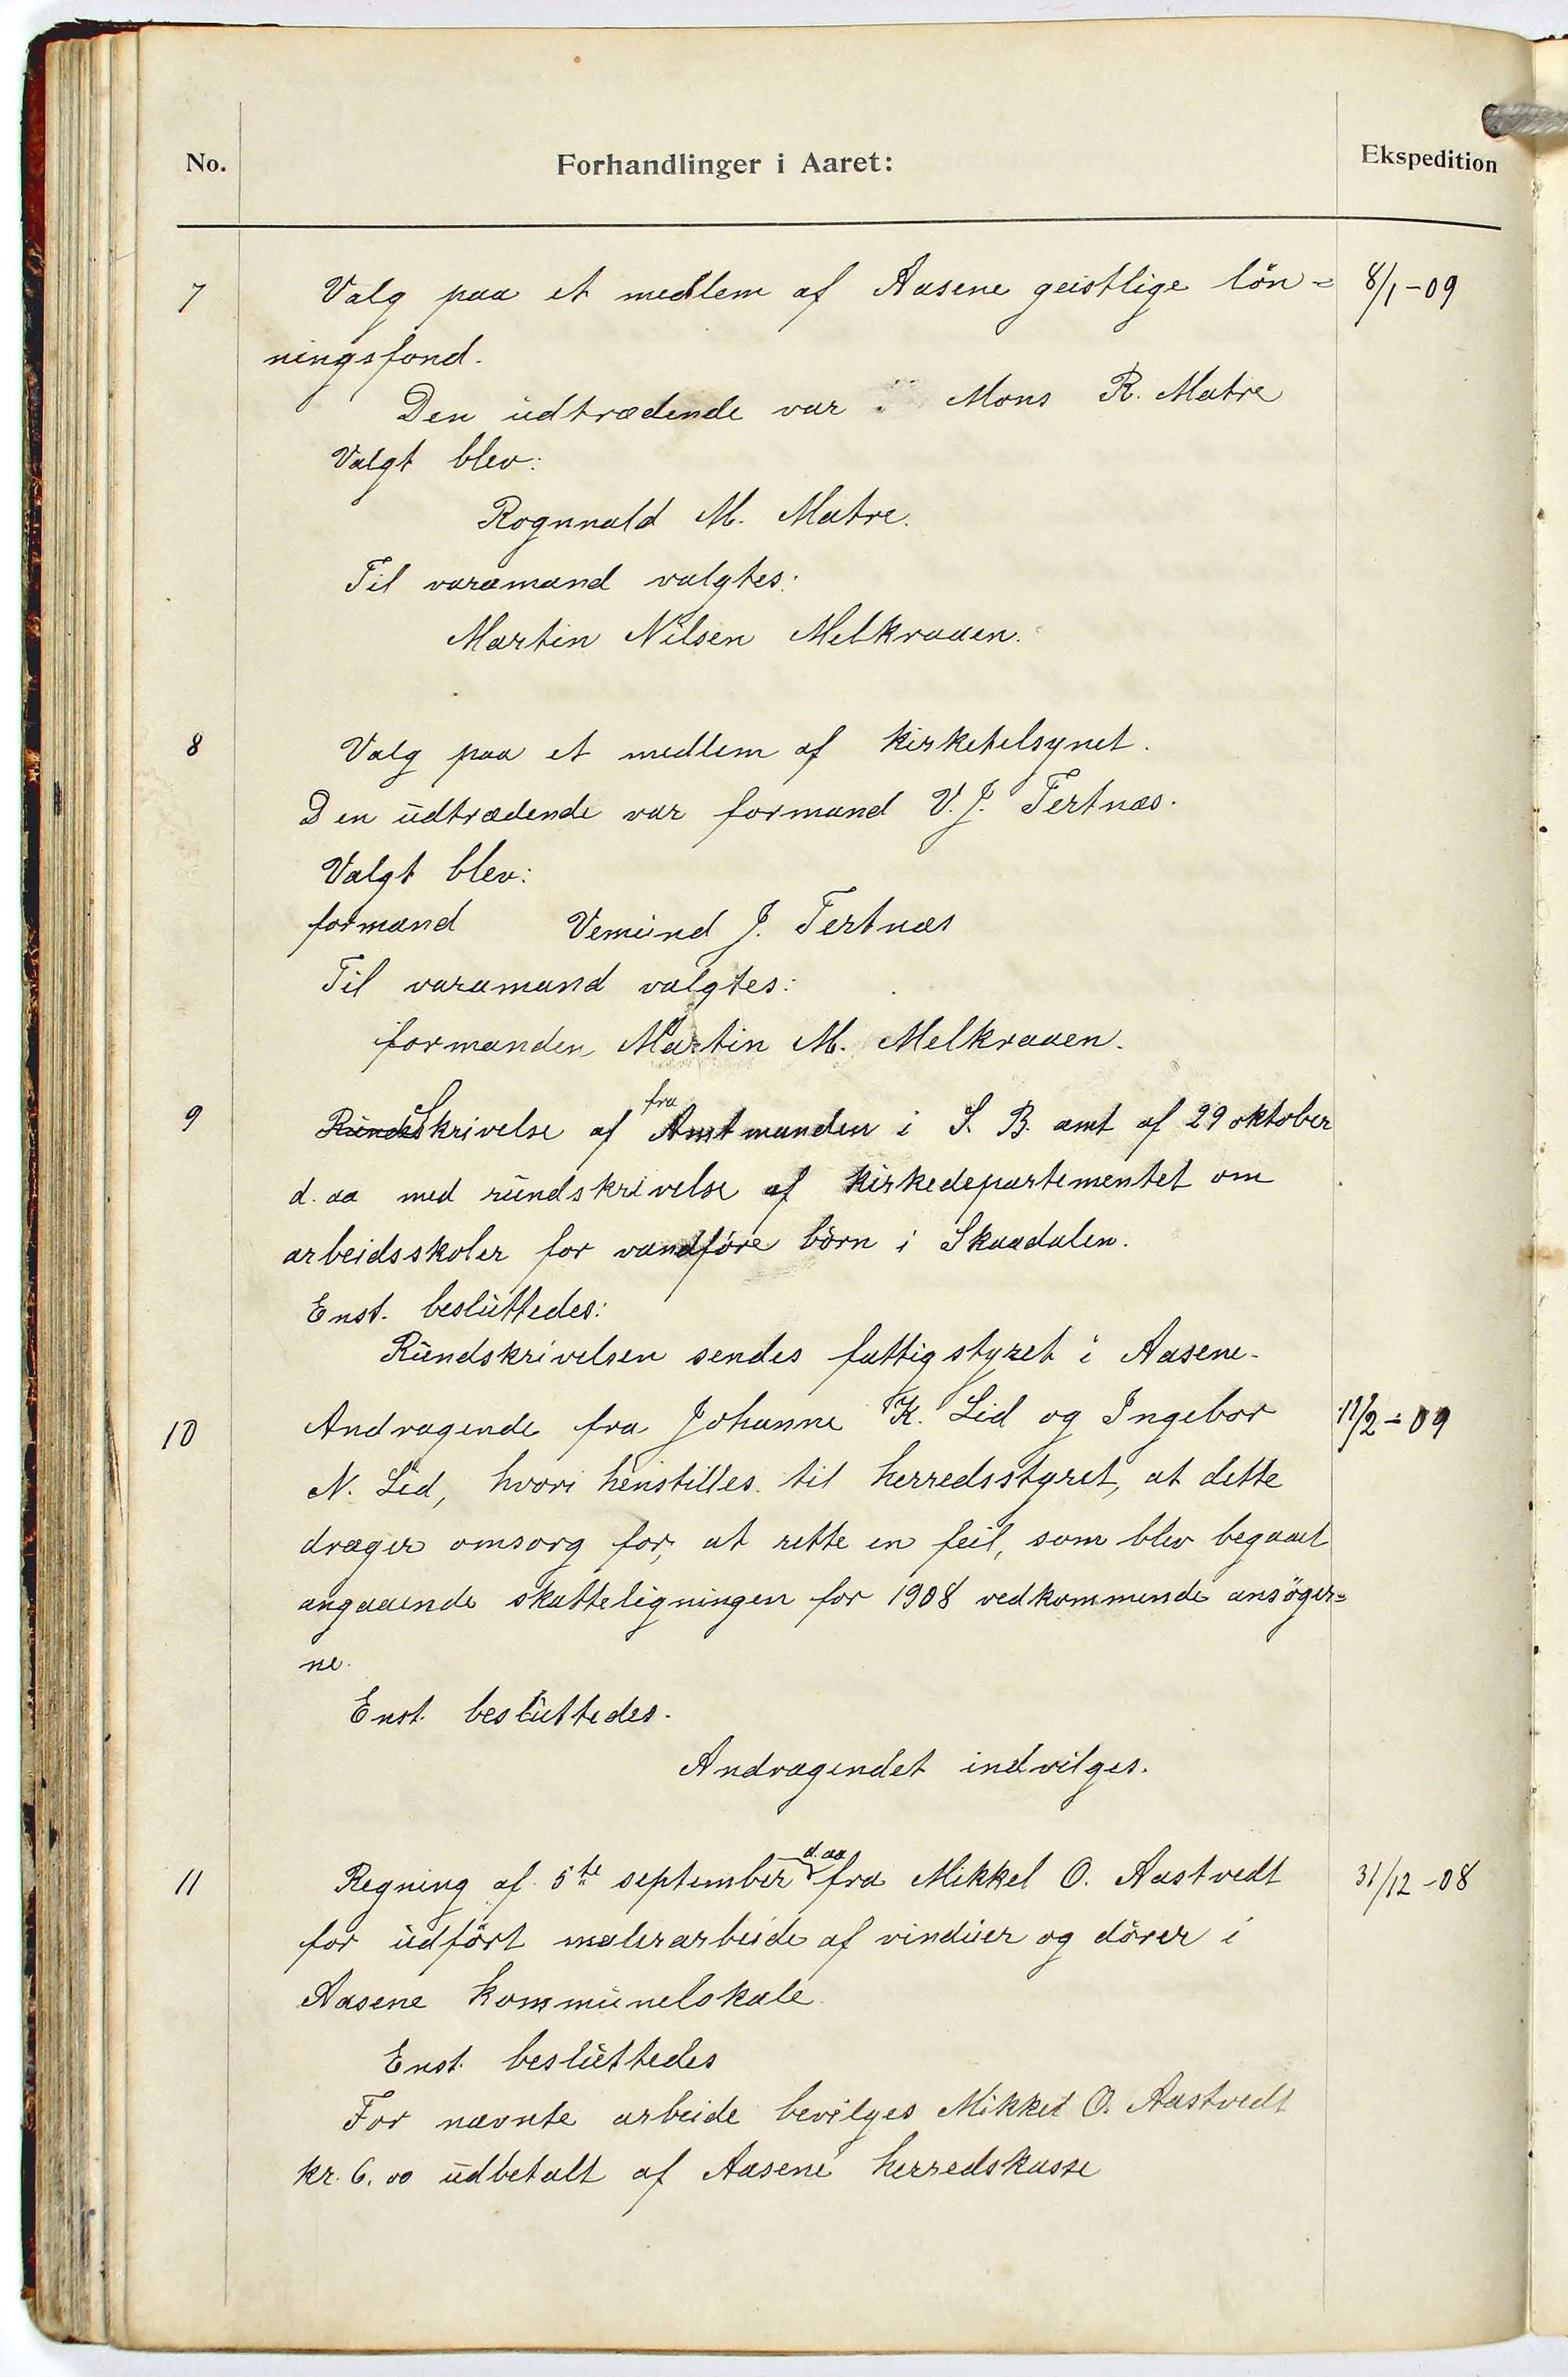 No. Forhandlinger i Aaret: Ekspedition
7 Valg paa et medlem af Aasene geistlige lön= 8/1-09
ningsfond.
Den udtrædende var Mons R. Matre
Valgt blev:
Rognnald M. Matre.
Til varamand valgtes:
Martin Nilsen Melkraaen.
8 Valg paa et medlem af kirketilsynet.
Den udtrædende var formand V. J. Tertnæs.
Valgt blev:
formand Vemund J. Tertnæs
Til varamand valgtes:
formanden Martin M. Melkraaen.
9 Runds Skrivelse af fra Amtmanden i S. B. amt af 29 oktober
d. aa med rundskrivelse af kirkedepartementet om
arbeidsskoler for vandföre börn i Skaadalen.
Enst. besluttedes:
Rundskrivelsen sendes fattigstyret i Aasene.
10 Andragende fra Johanne K. Lid og Ingebor 11/2-09
N. Lid, hvori henstilles til herredsstyret, at dette
drager omsorg for, at rette en feil, som blev begaaet
angaaende skatteligningen for 1908 vedkommende ansöger=
ne.
Enst. besluttedes.
Andragendet indvilges.
11 Regning af 5te september d. aa fra Mikkel O. Aastvedt 31/12-08
for udfört malerarbeide af vinduer og dörer i
Aasene kommunelokale
Enst. besluttedes
For nævnte arbeide bevilges Mikkel O. Aastvedt
kr. 6.00 udbetalt af Aasene herredskasse